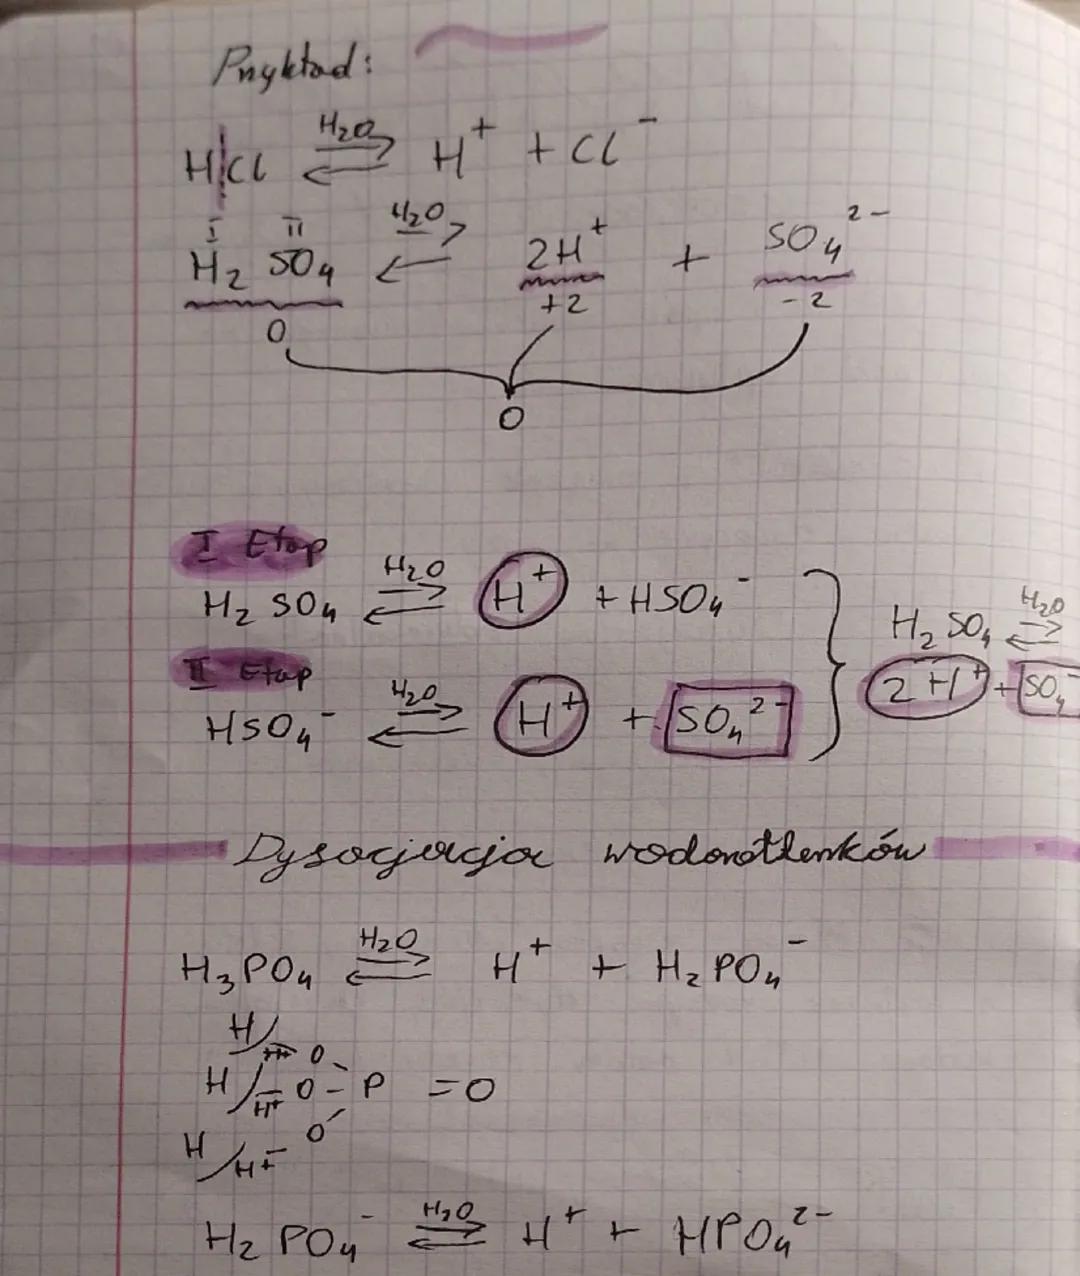 Przykład:
H|Cl ⇌ H₂O H⁺ + Cl⁻
I II
H₂SO₄ ⇌ H₂O 2H⁺ + SO₄²⁻
0 +2 -2
0
I Etap
H₂SO₄ ⇌ H₂O H⁺ + HSO₄⁻
II Etap
HSO₄⁻ ⇌ H₂O H⁺ + SO₄²⁻
} H₂SO₄ ⇌ H₂O
2H⁺ + SO₄⁻
Dysocjacja wodorotlenków
H₃PO₄ ⇌ H₂O H⁺ + H₂PO₄⁻
H O
H H⁺ O - P = O
H H⁺ O
H₂PO₄⁻ ⇌ H₂O H⁺ + HPO₄²⁻